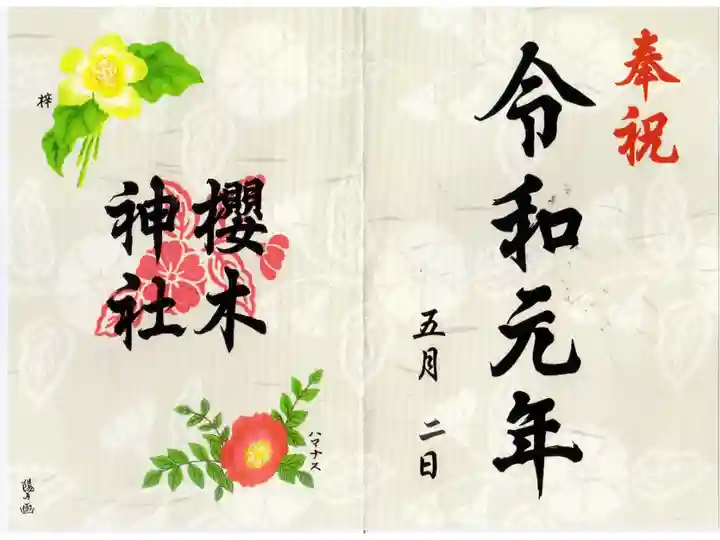 奉祝
令和元年
五月二日
櫻木
神社
梓
ハマナス